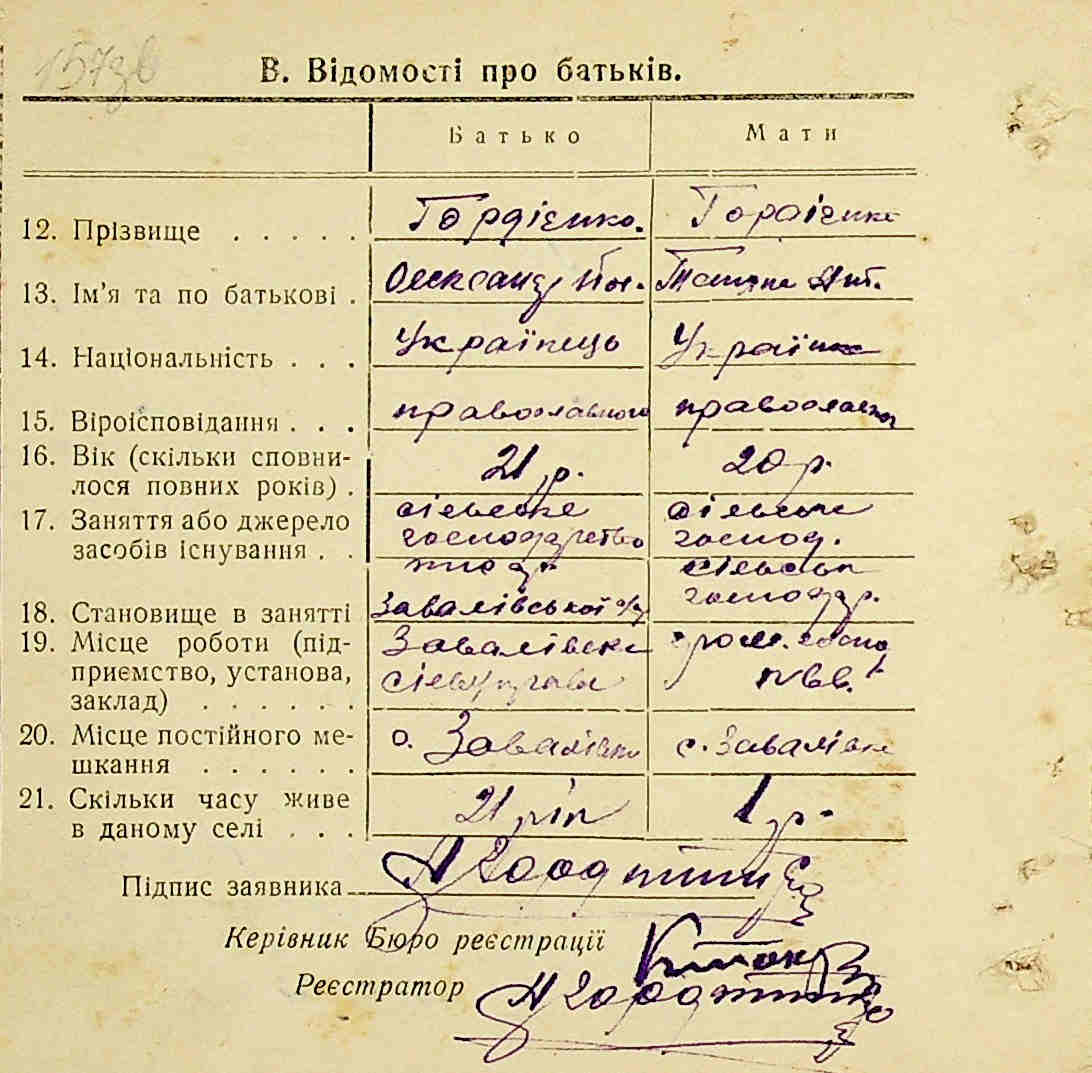 В. Відомості про батьків.
Батько Мати
12. Прізвище . . . . . Гордієнко. Гордієнко
13. Ім'я та по батькові . Олександ Йос. Тетяна Ант.
14. Національність . . . Українець Українка
15. Віроісповідання . . . православного православної
16. Вік (скільки сповни-
лося повних років) . 21 р. 20 р.
17. Заняття або джерело сільське сільське
засобів існування . . господарство господ.
сільськ
18. Становище в занятті Завалівської с/у господар.
19. Місце роботи (під- Завалівська
приємство, установа, сільуправа
заклад) . . . . . .
20. Місце постійного ме- с. Завалівка с. Завалівка
шкання . . . . . .
21. Скільки часу живе
в даному селі . . . 21 рік 1 р.
Підпис заявника
Керівник Бюро реєстрації
Реєстратор